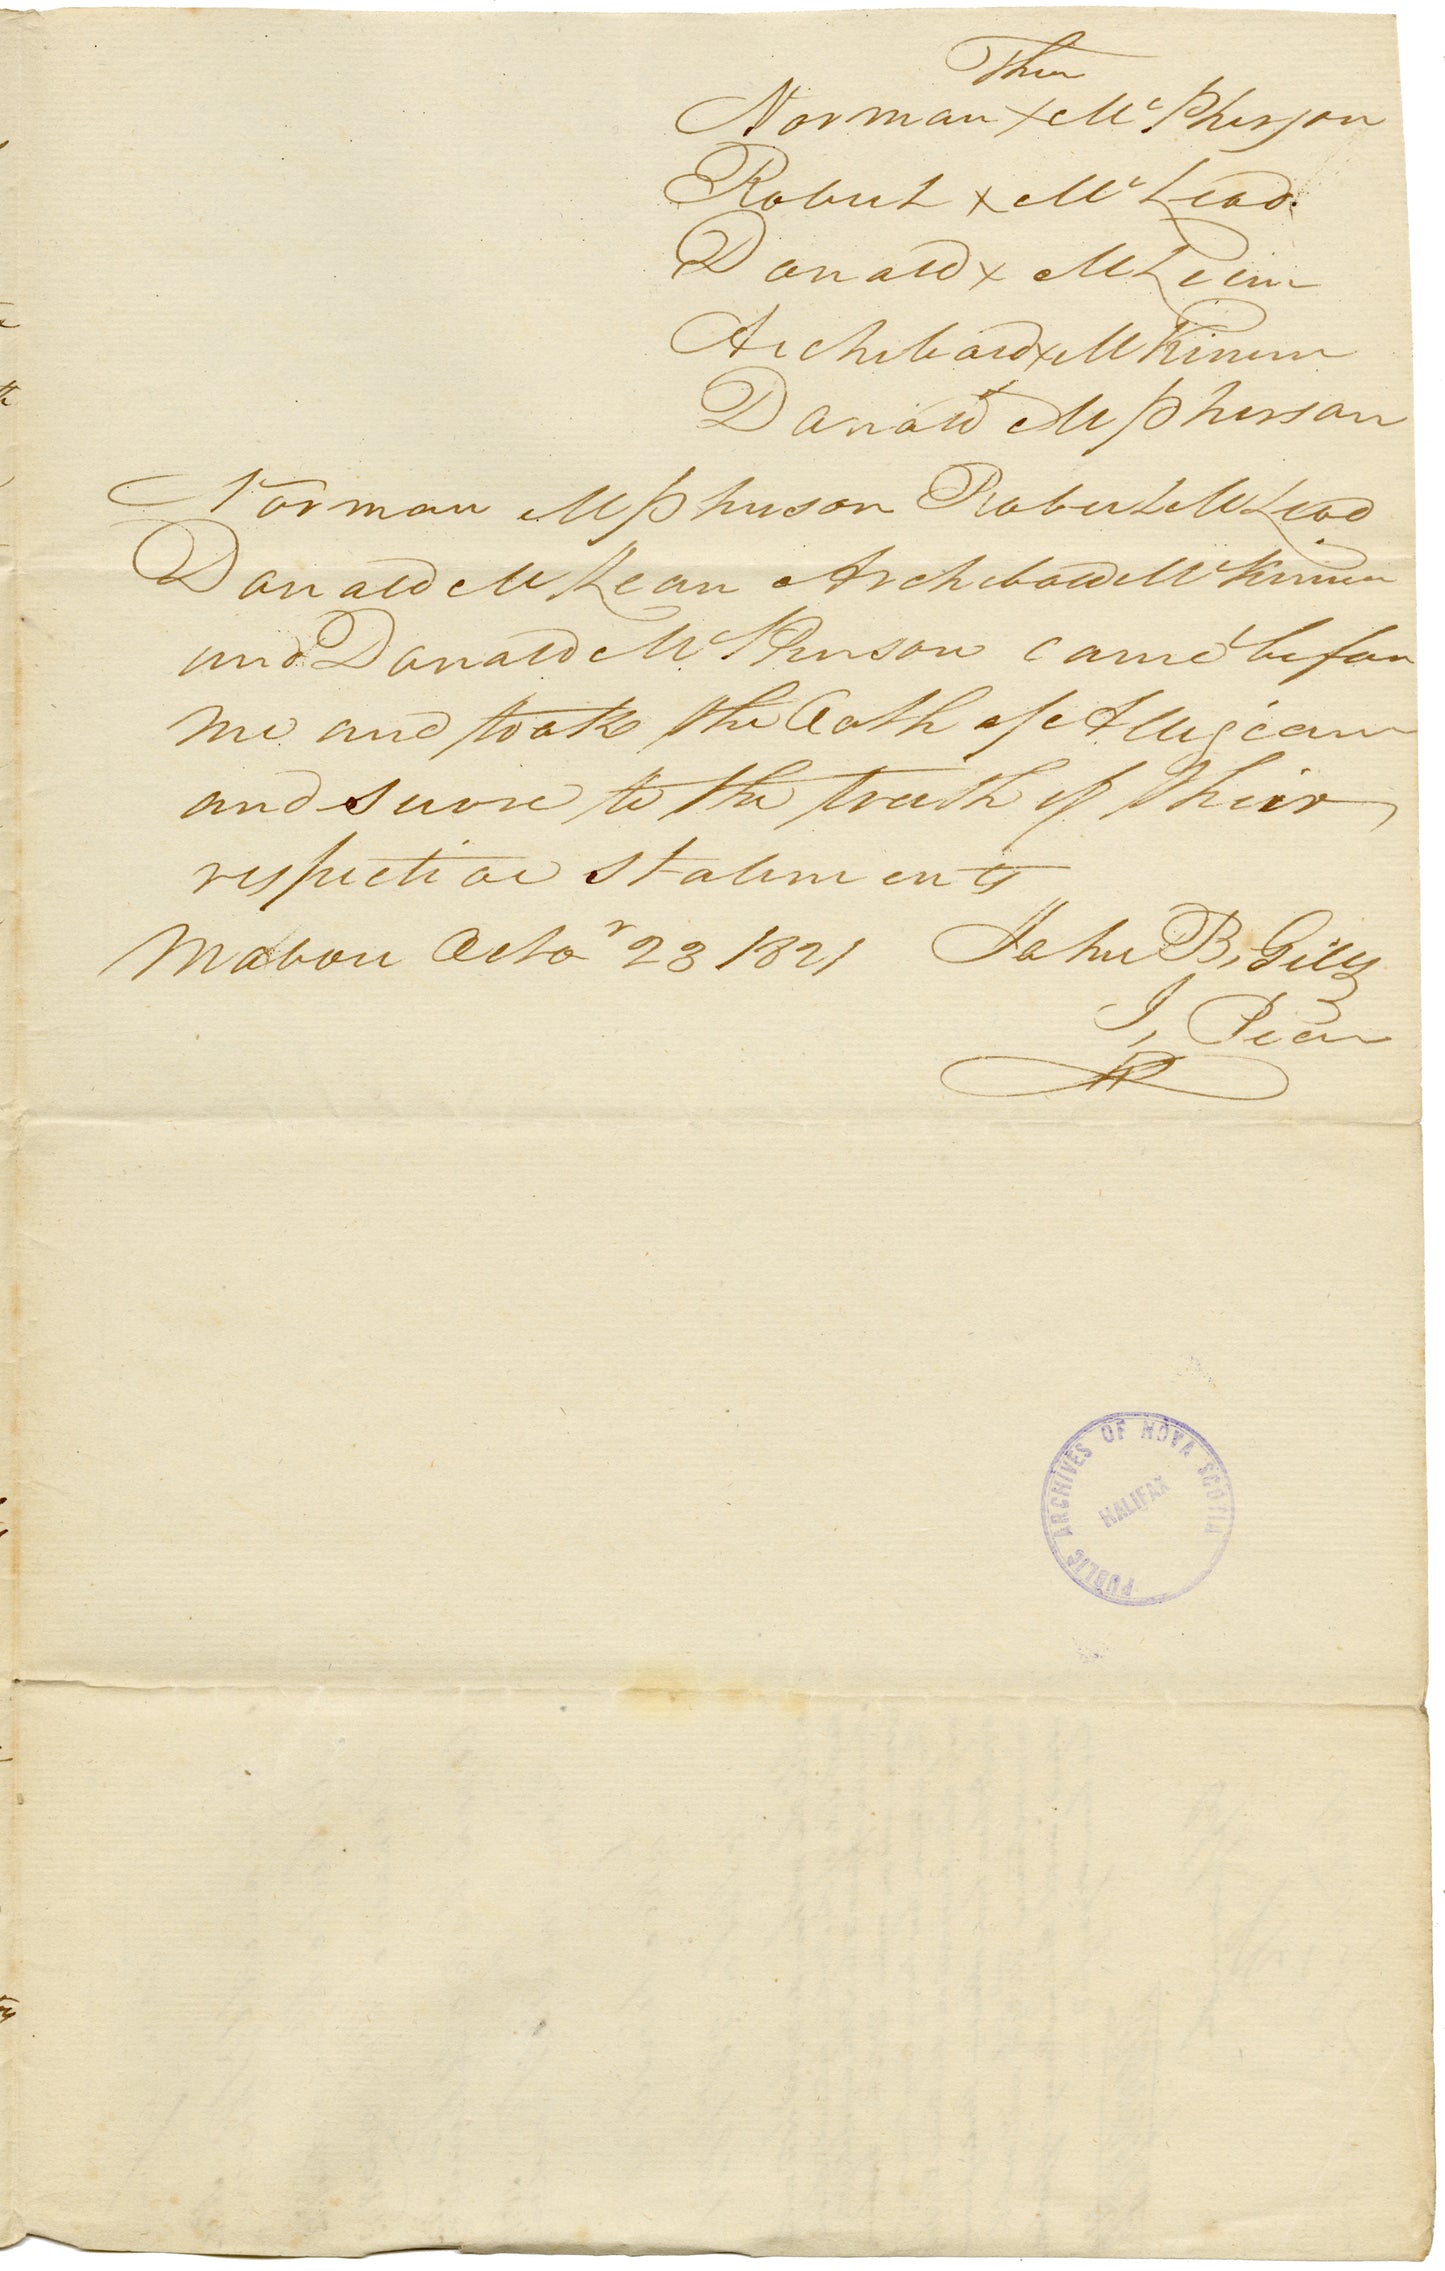 Their
Norman x McPherson
Robert x McLeod.
Donald x McLean
Archibald x McKinnen
Donald McPherson
Norman McPherson Robert McLeod
Donald McLean Archibald McKinnen
and Donald McPherson came before
me and took the Oath of Allegiance
and swore to the truth of their
respective statements
Mabou Octor 23 1821 John B, Gilly
J, Peace
PUBLIC ARCHIVES OF NOVA SCOTIA
HALIFAX